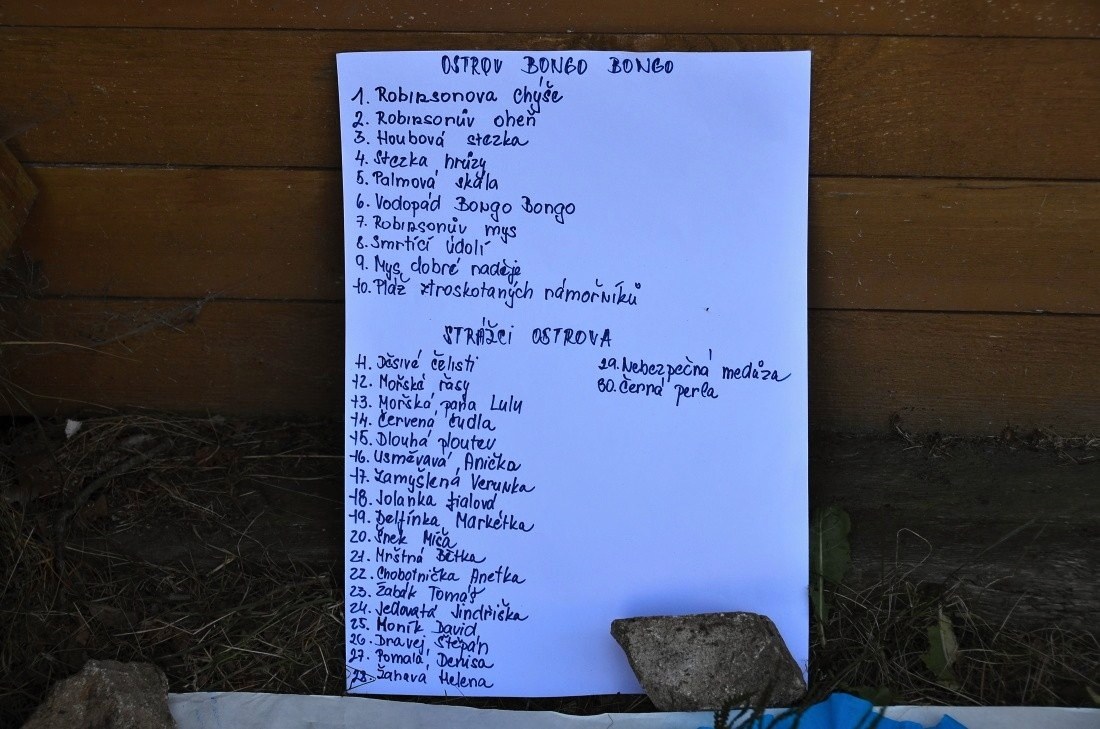 OSTROV BONGO BONGO
1. Robinsonova chýše
2. Robinsonův oheň
3. Houbová stezka
4. Stezka hrůzy
5. Palmová skála
6. Vodopád Bongo Bongo
7. Robinsonův mys
8. Smrtící údolí
9. Mys dobré naděje
10. Pláž ztroskotaných námořníků
STRÁŽCI OSTROVA
11. Děsivé čelisti
12. Mořské řasy
13. Mořská pana Lulu
14. Červená čudla
15. Dlouhá ploutev
16. Usměvavá Anička
17. Zamyšlená Verunka
18. Jolanka fialová
19. Delfínka Markétka
20. Šnek Míša
21. Mrštná Bětka
22. Chobotnička Anetka
23. Žabák Tomáš
24. Jedovatá Jindřiška
25. Moník David
26. Dravej Štěpán
27. Pomalá Denisa
28. Žahavá Helena
29. Nebezpečná medůza
30. Černá perla